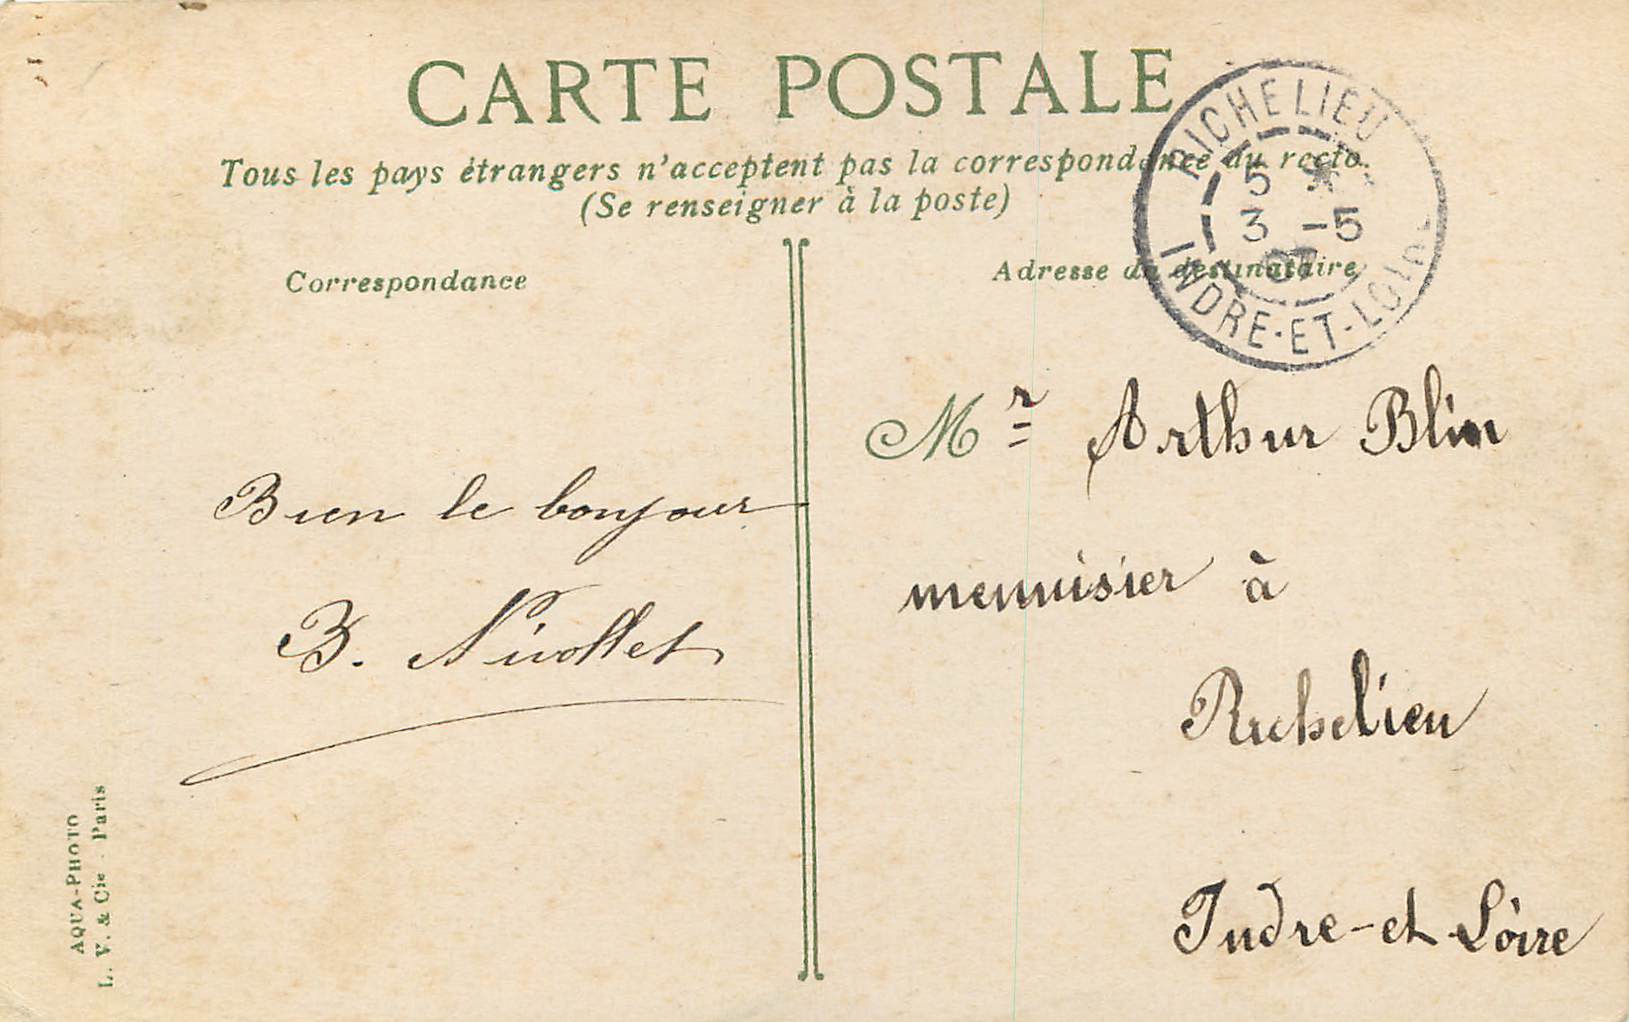 CARTE POSTALE
Tous les pays étrangers n'acceptent pas la correspondance au recto.
(Se renseigner à la poste)
Correspondance
Adresse du destinataire
RICHELIEU
5 *
3 -5
07
INDRE-ET-LOIRE
Bien le bonjour
B.
Mr Arthur Blin
menuisier à
Richelieu
Indre-et-Loire
AQUA-PHOTO
L. V. & Cie - Paris